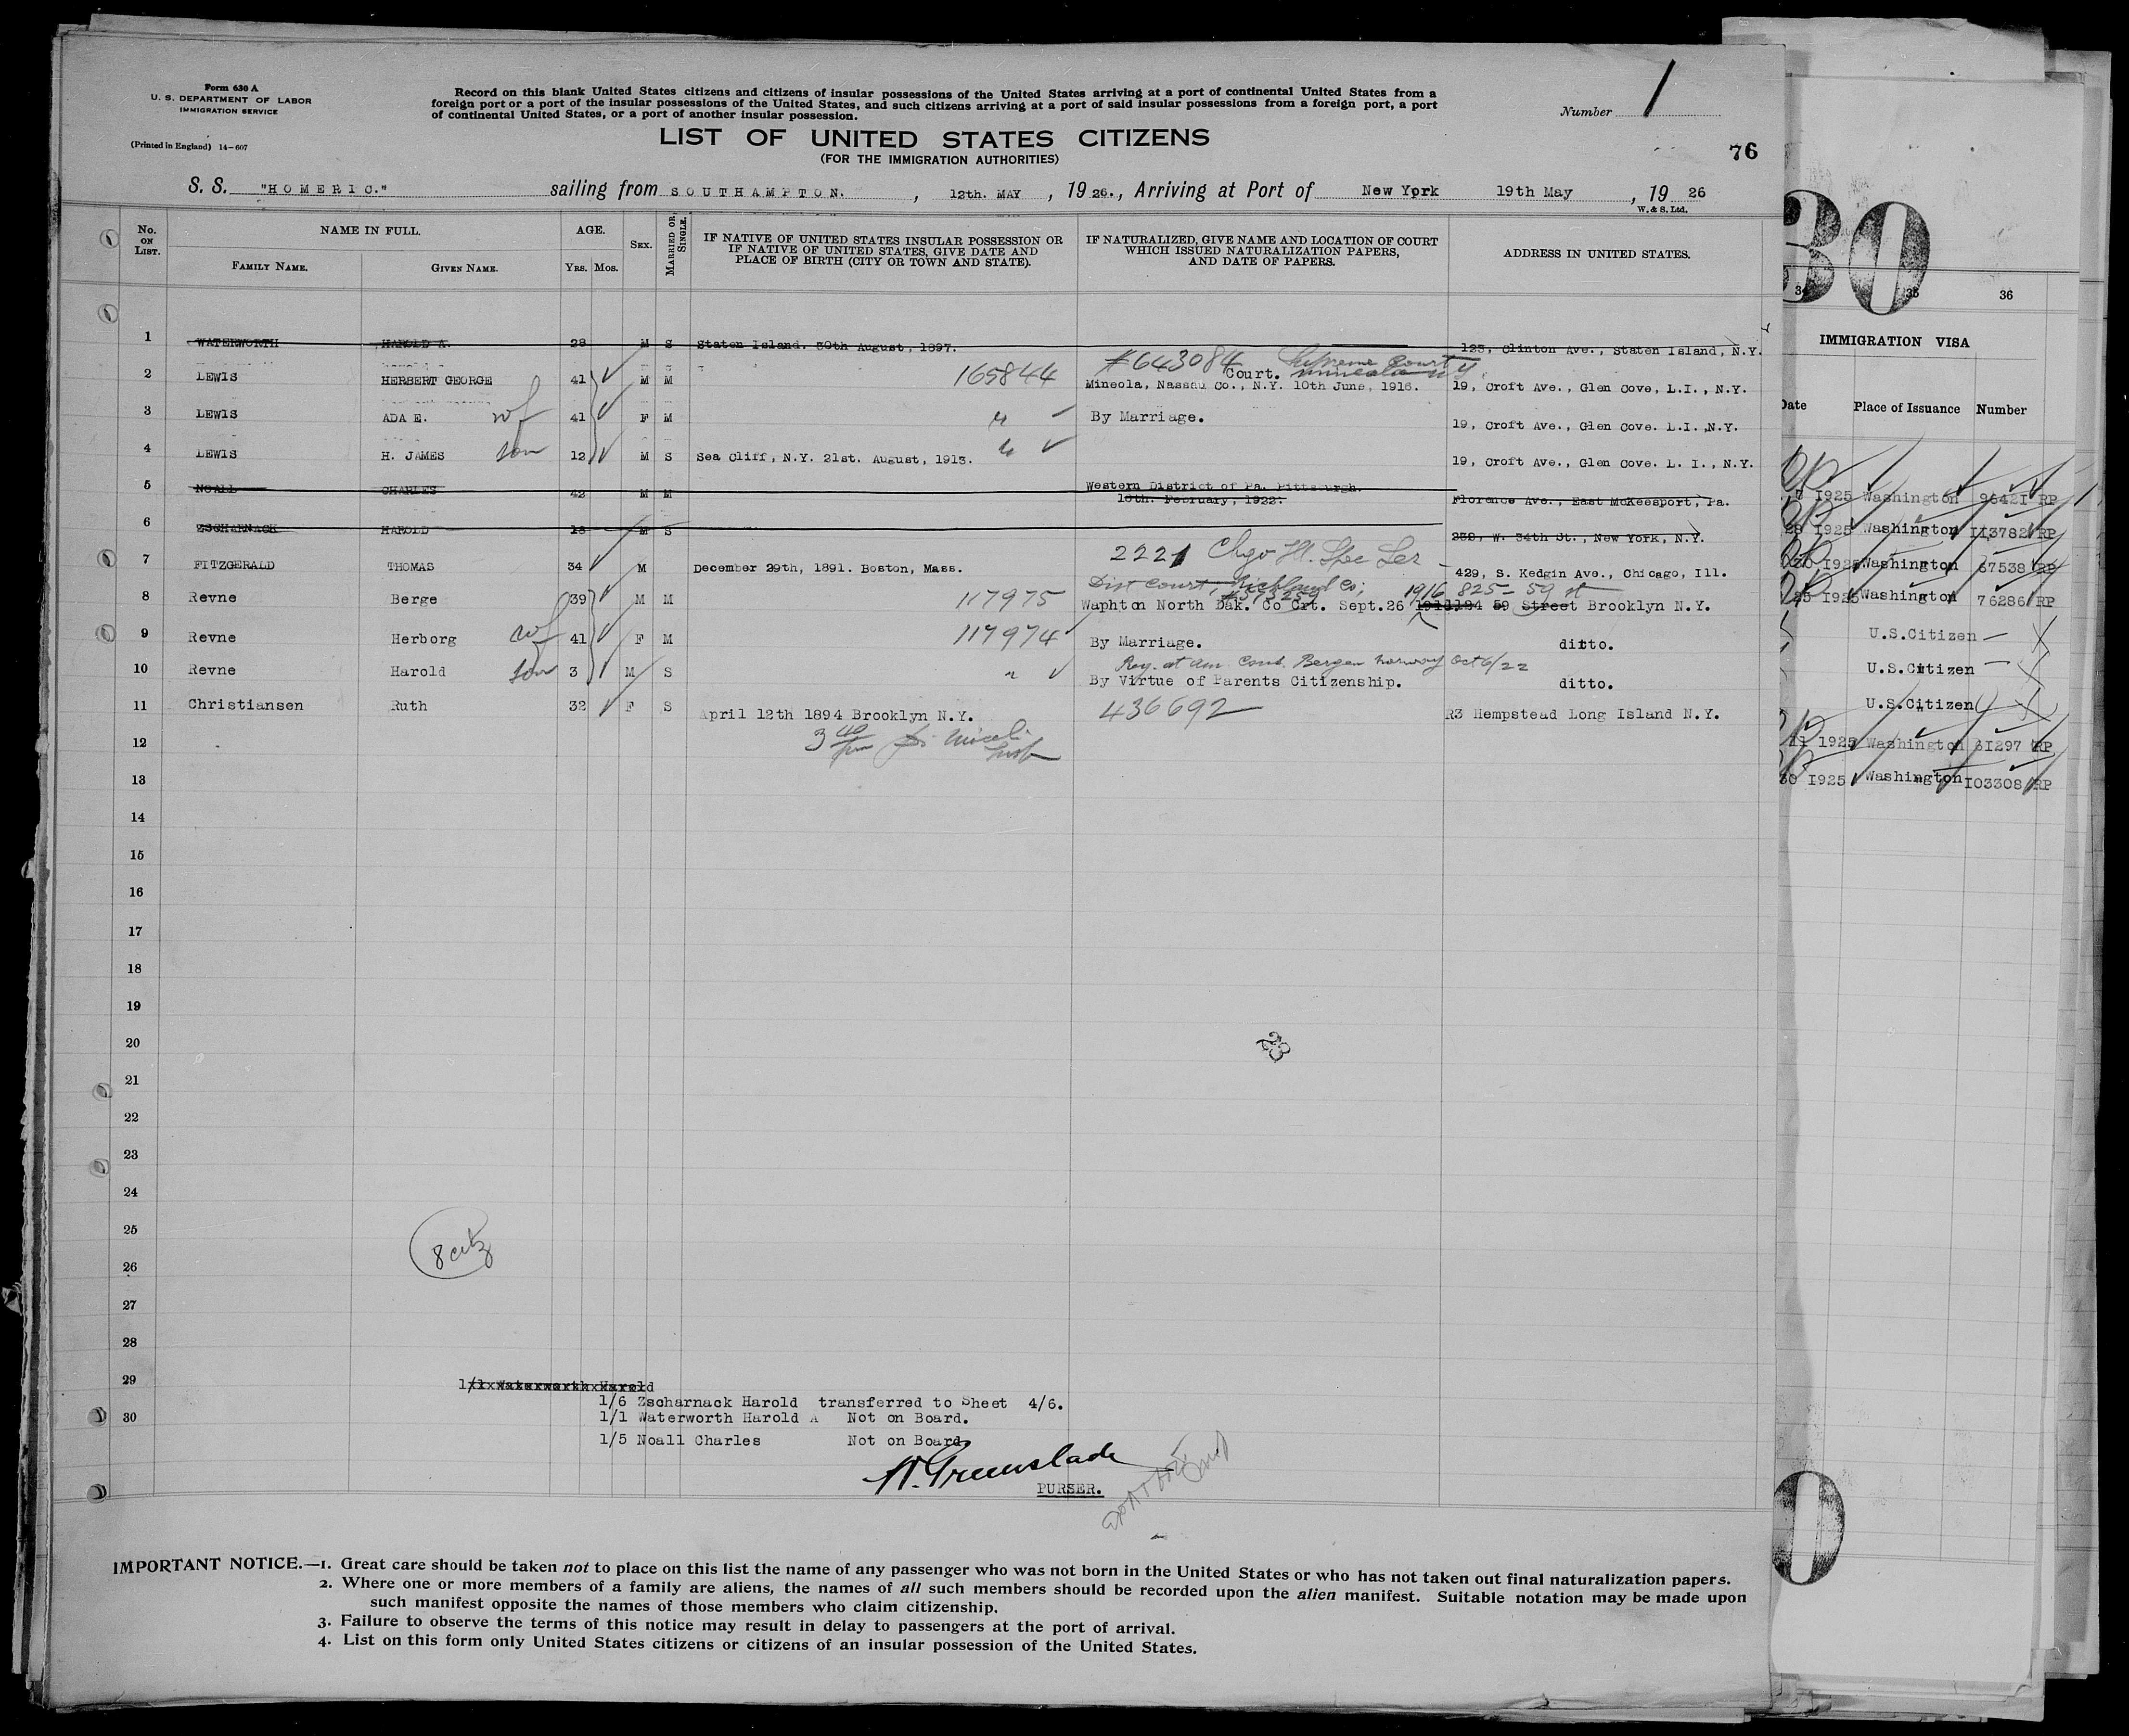 Form 630 A
U. S. DEPARTMENT OF LABOR
IMMIGRATION SERVICE
(Printed in England) 14-607
Record on this blank United States citizens and citizens of insular possessions of the United States arriving at a port of continental United States from a
foreign port or a port of the insular possessions of the United States, and such citizens arriving at a port of said insular possessions from a foreign port, a port
of continental United States, or a port of another insular possession.
Number 1
LIST OF UNITED STATES CITIZENS
(FOR THE IMMIGRATION AUTHORITIES)
76
S. S. "HOMERIC." sailing from SOUTHAMPTON. , 12th. MAY , 1926., Arriving at Port of New York 19th May , 1926
W. & S. Ltd.
No. ON LIST.
NAME IN FULL.
FAMILY NAME. GIVEN NAME.
AGE.
YRS. MOS.
SEX.
MARRIED OR SINGLE.
IF NATIVE OF UNITED STATES INSULAR POSSESSION OR
IF NATIVE OF UNITED STATES, GIVE DATE AND
PLACE OF BIRTH (CITY OR TOWN AND STATE).
IF NATURALIZED, GIVE NAME AND LOCATION OF COURT
WHICH ISSUED NATURALIZATION PAPERS,
AND DATE OF PAPERS.
ADDRESS IN UNITED STATES.
1 WATERWORTH HAROLD A. 28 M S Staten Island. 30th August, 1897. 123, Clinton Ave., Staten Island, N.Y.
#643084 Supreme Court
2 LEWIS HERBERT GEORGE 41 M M 165844 Court. Mineola N Y
Mineola, Nassau Co., N.Y. 10th June, 1916. 19, Croft Ave., Glen Cove, L.I., N.Y.
3 LEWIS ADA E. wf 41 F M " By Marriage. 19, Croft Ave., Glen Cove. L.I.,N.Y.
4 LEWIS H. JAMES son 12 M S Sea Cliff, N.Y. 21st. August, 1913. " 19, Croft Ave., Glen Cove. L. I., N.Y.
5 NOALL CHARLES 42 M M Western District of Pa. Pittsburgh.
10th. February, 1922. Florence Ave., East McKeesport, Pa.
6 ZSCHARNACK HAROLD 18 M S 239, W. 34th St., New York, N.Y.
2221 Chgo Ill. Spe Ser
7 FITZGERALD THOMAS 34 M December 29th, 1891. Boston, Mass. 429, S. Kedgin Ave., Chicago, Ill.
Dist Court, Richland Co; 1916 825 - 59 st
8 Revne Berge 39 M M 117975 Waphton North Dak. Co Crt. Sept.26 59 Street Brooklyn N.Y.
9 Revne Herborg wf 41 F M 117974 By Marriage. ditto.
Reg. at Am. Cons. Bergen Norway Oct 6/22
10 Revne Harold son 3 M S " By Virtue of Parents Citizenship. ditto.
11 Christiansen Ruth 32 F S April 12th 1894 Brooklyn N.Y. 436692 R3 Hempstead Long Island N.Y.
12
13
14
15
16
17
18
19
20
21
22
23
24
25
26
27
28
29
30
8 citz
1/6 Zscharnack Harold transferred to Sheet 4/6.
1/1 Waterworth Harold A Not on Board.
1/5 Noall Charles Not on Board
H. Greenslade
PURSER.
IMPORTANT NOTICE.—1. Great care should be taken not to place on this list the name of any passenger who was not born in the United States or who has not taken out final naturalization papers.
2. Where one or more members of a family are aliens, the names of all such members should be recorded upon the alien manifest. Suitable notation may be made upon
such manifest opposite the names of those members who claim citizenship.
3. Failure to observe the terms of this notice may result in delay to passengers at the port of arrival.
4. List on this form only United States citizens or citizens of an insular possession of the United States.
30
34 35 36
IMMIGRATION VISA
Date Place of Issuance Number
1925 Washington 96421 RP
28 1925 Washington 113782 RP
30 1925 Washington 67538 RP
25 1925 Washington 76286 RP
U.S.Citizen
U.S.Citizen
U.S.Citizen
11 1925 Washington 61297 RP
30 1925 Washington 103308 RP
0